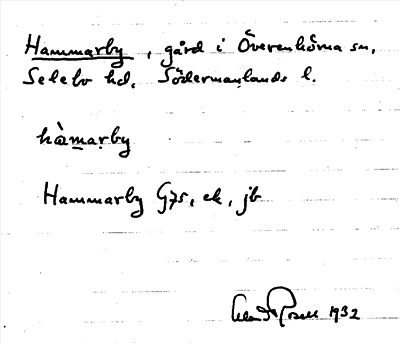 Hammarby, gård i Överenhörna sn,
Selebo hd, Södermanlands l.
hàmarby
Hammarby G75, ek, jb
1932